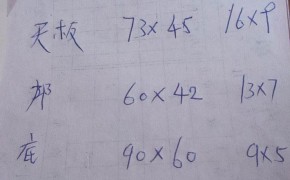 天板 73×45 16×9
部 60×42 13×7
底 90×60 9×5